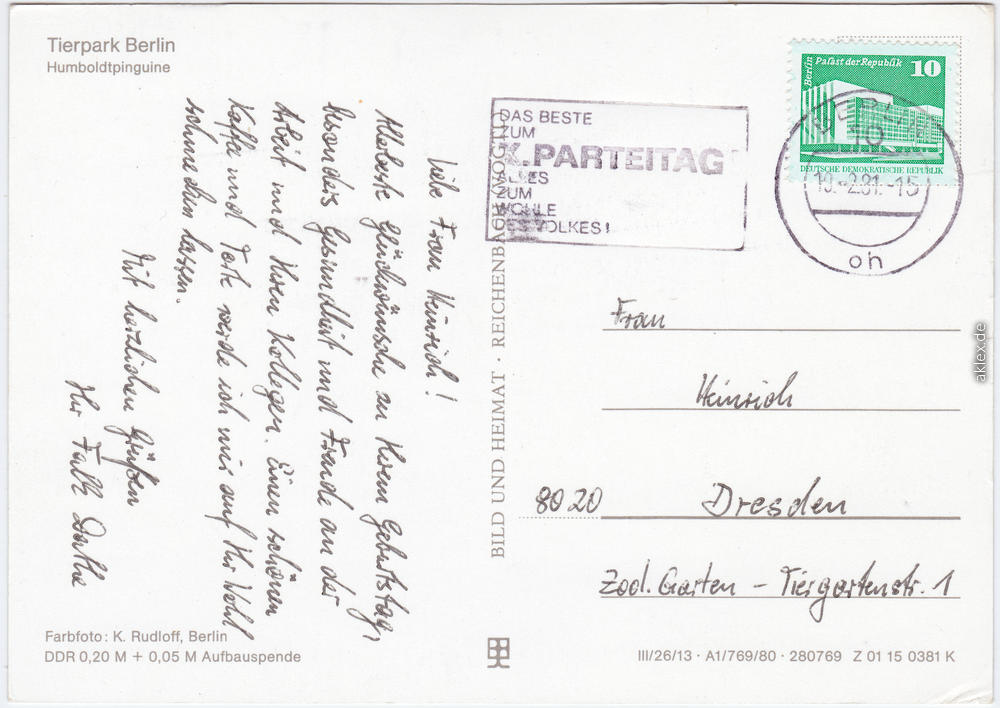 Tierpark Berlin
Humboldtpinguine
Liebe Frau Heinrich!
Allerbeste Glückwünsche zu Ihrem Geburtstag,
besonders Gesundheit und Freude an der
Arbeit und Ihren Kollegen. Einen schönen
Kaffee und Torte werde ich mir auf Ihr Wohl
schmecken lassen.
Mit herzlichen Grüßen
Ihr Falk Dathe
Farbfoto: K. Rudloff, Berlin
DDR 0,20 M + 0,05 M Aufbauspende
BILD UND HEIMAT · REICHENBACH (VOGTL)
DAS BESTE
ZUM
X. PARTEITAG
ALLES
ZUM
WOHLE
DES VOLKES!
Berlin Palast der Republik 10
DEUTSCHE DEMOKRATISCHE REPUBLIK
BERLIN
10
19.-2.81.-15
oh
Frau
Heinrich
8020 Dresden
Zool. Garten – Tiergartenstr. 1
III/26/13 · A1/769/80 · 280769 Z 01 15 0381 K
aklex.de